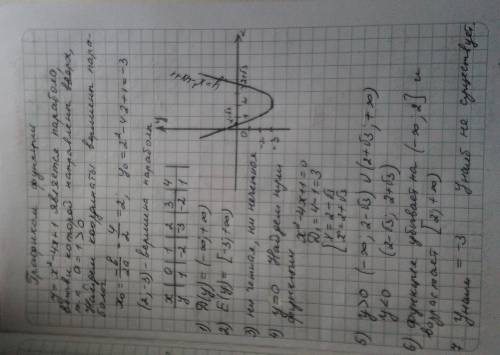 Графиком функции
y = x² - 4x + 1 является парабола,
ветви которой направлены вверх,
т.к. a = 1 > 0
Найдем координаты вершины пара-
болы
x₀ = -b/2a = 4/2 = 2, y₀ = 2² - 4·2 + 1 = -3
(2; -3) - вершина параболы
x | 0 | 1 | 2 | 3 | 4
y | 1 | -2 | -3 | -2 | 1
1) D(y) = (-∞; +∞)
2) E(y) = [-3; +∞)
3) ни четная, ни нечетная
4) y = 0 Найдем нули
функции
x² - 4x + 1 = 0
D₁ = 4 - 1 = 3
5) y > 0 (-∞; 2-√3) ∪ (2+√3; +∞)
y < 0 (2-√3; 2+√3)
6) Функция убывает на (-∞; 2] и
возрастает [2; +∞)
7 Yнаим = -3 Yнаиб не существует.
y
x
0
-2
-3
2-√3
2+√3
y = x² - 4x + 1